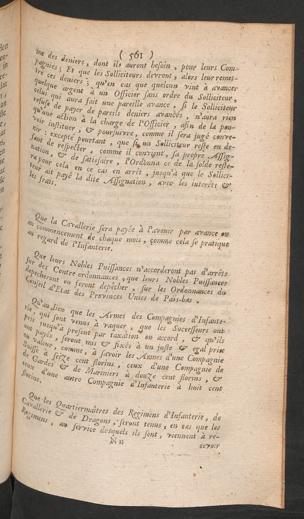 ( 561 )
ine des deniers, dont ils auront besoin, pour leurs Com-
pagnies; Et que les Solliciteurs devront, alors leur remet-
tre ces deniers; qu'en cas que quelcun vint à avancer
quelque argent à un Officier sans ordre du Solliciteur,
celui qui aura fait une pareille avance, si le Solliciteur
refuse de payer de pareils deniers avancés, n'aura rien
qu'une action à la charge de l'Officier, afin de la pou-
voir instituer, & poursuivre, comme il sera jugé conve-
nir; excepté pourtant, que si un Solliciteur reste en de-
faut de respecter, comme il convient, sa propre Assig-
nation, & de satisfaire, l'Ordonnance de la solde reste-
ra pour cela en ce cas en arrêt, jusqu'à que le Sollici-
teur ait payé la dite Assignation, avec les interêts &
les frais.
Que la Cavallerie sera payée à l'avenir par avance au
commencement de chaque mois, comme cela se pratique
au regard de l'Infanterie.
Que leurs Nobles Puissances n'accorderont pas d'arrêts
sur des Contre-ordonnances, que leurs Nobles Puissances
depêcheront ou feront depêcher, sur les Ordonnances du
Conseil d'Etat des Provinces Unies de Païs-bas.
Qu'au lieu que les Armes des Compagnies d'Infante-
rie, qui sont venus à vaquer, que les Successeurs ont
pris jusqu'à present par taxation ou accord, & qu'ils
ont payés, seront mis & fixés à un juste & egal prix
ou valeur, comme, à savoir les Armes d'une Compagnie
Suisse à seize cent florins, ceux d'une Compagnie de
Gardes & de Mariniers à douze cent florins, &
ceux d'une autre Compagnie d'Infanterie à huit cent
florins.
Que les Quartiermaîtres des Regimens d'Infanterie, de
Cavallerie & de Dragons, seront tenus, en cas que les
Regimens, au service desquels ils sont, viennent à re-
cevoir